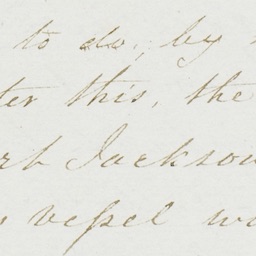 to do, by
ter this, the
rt Jackson
veſsel w